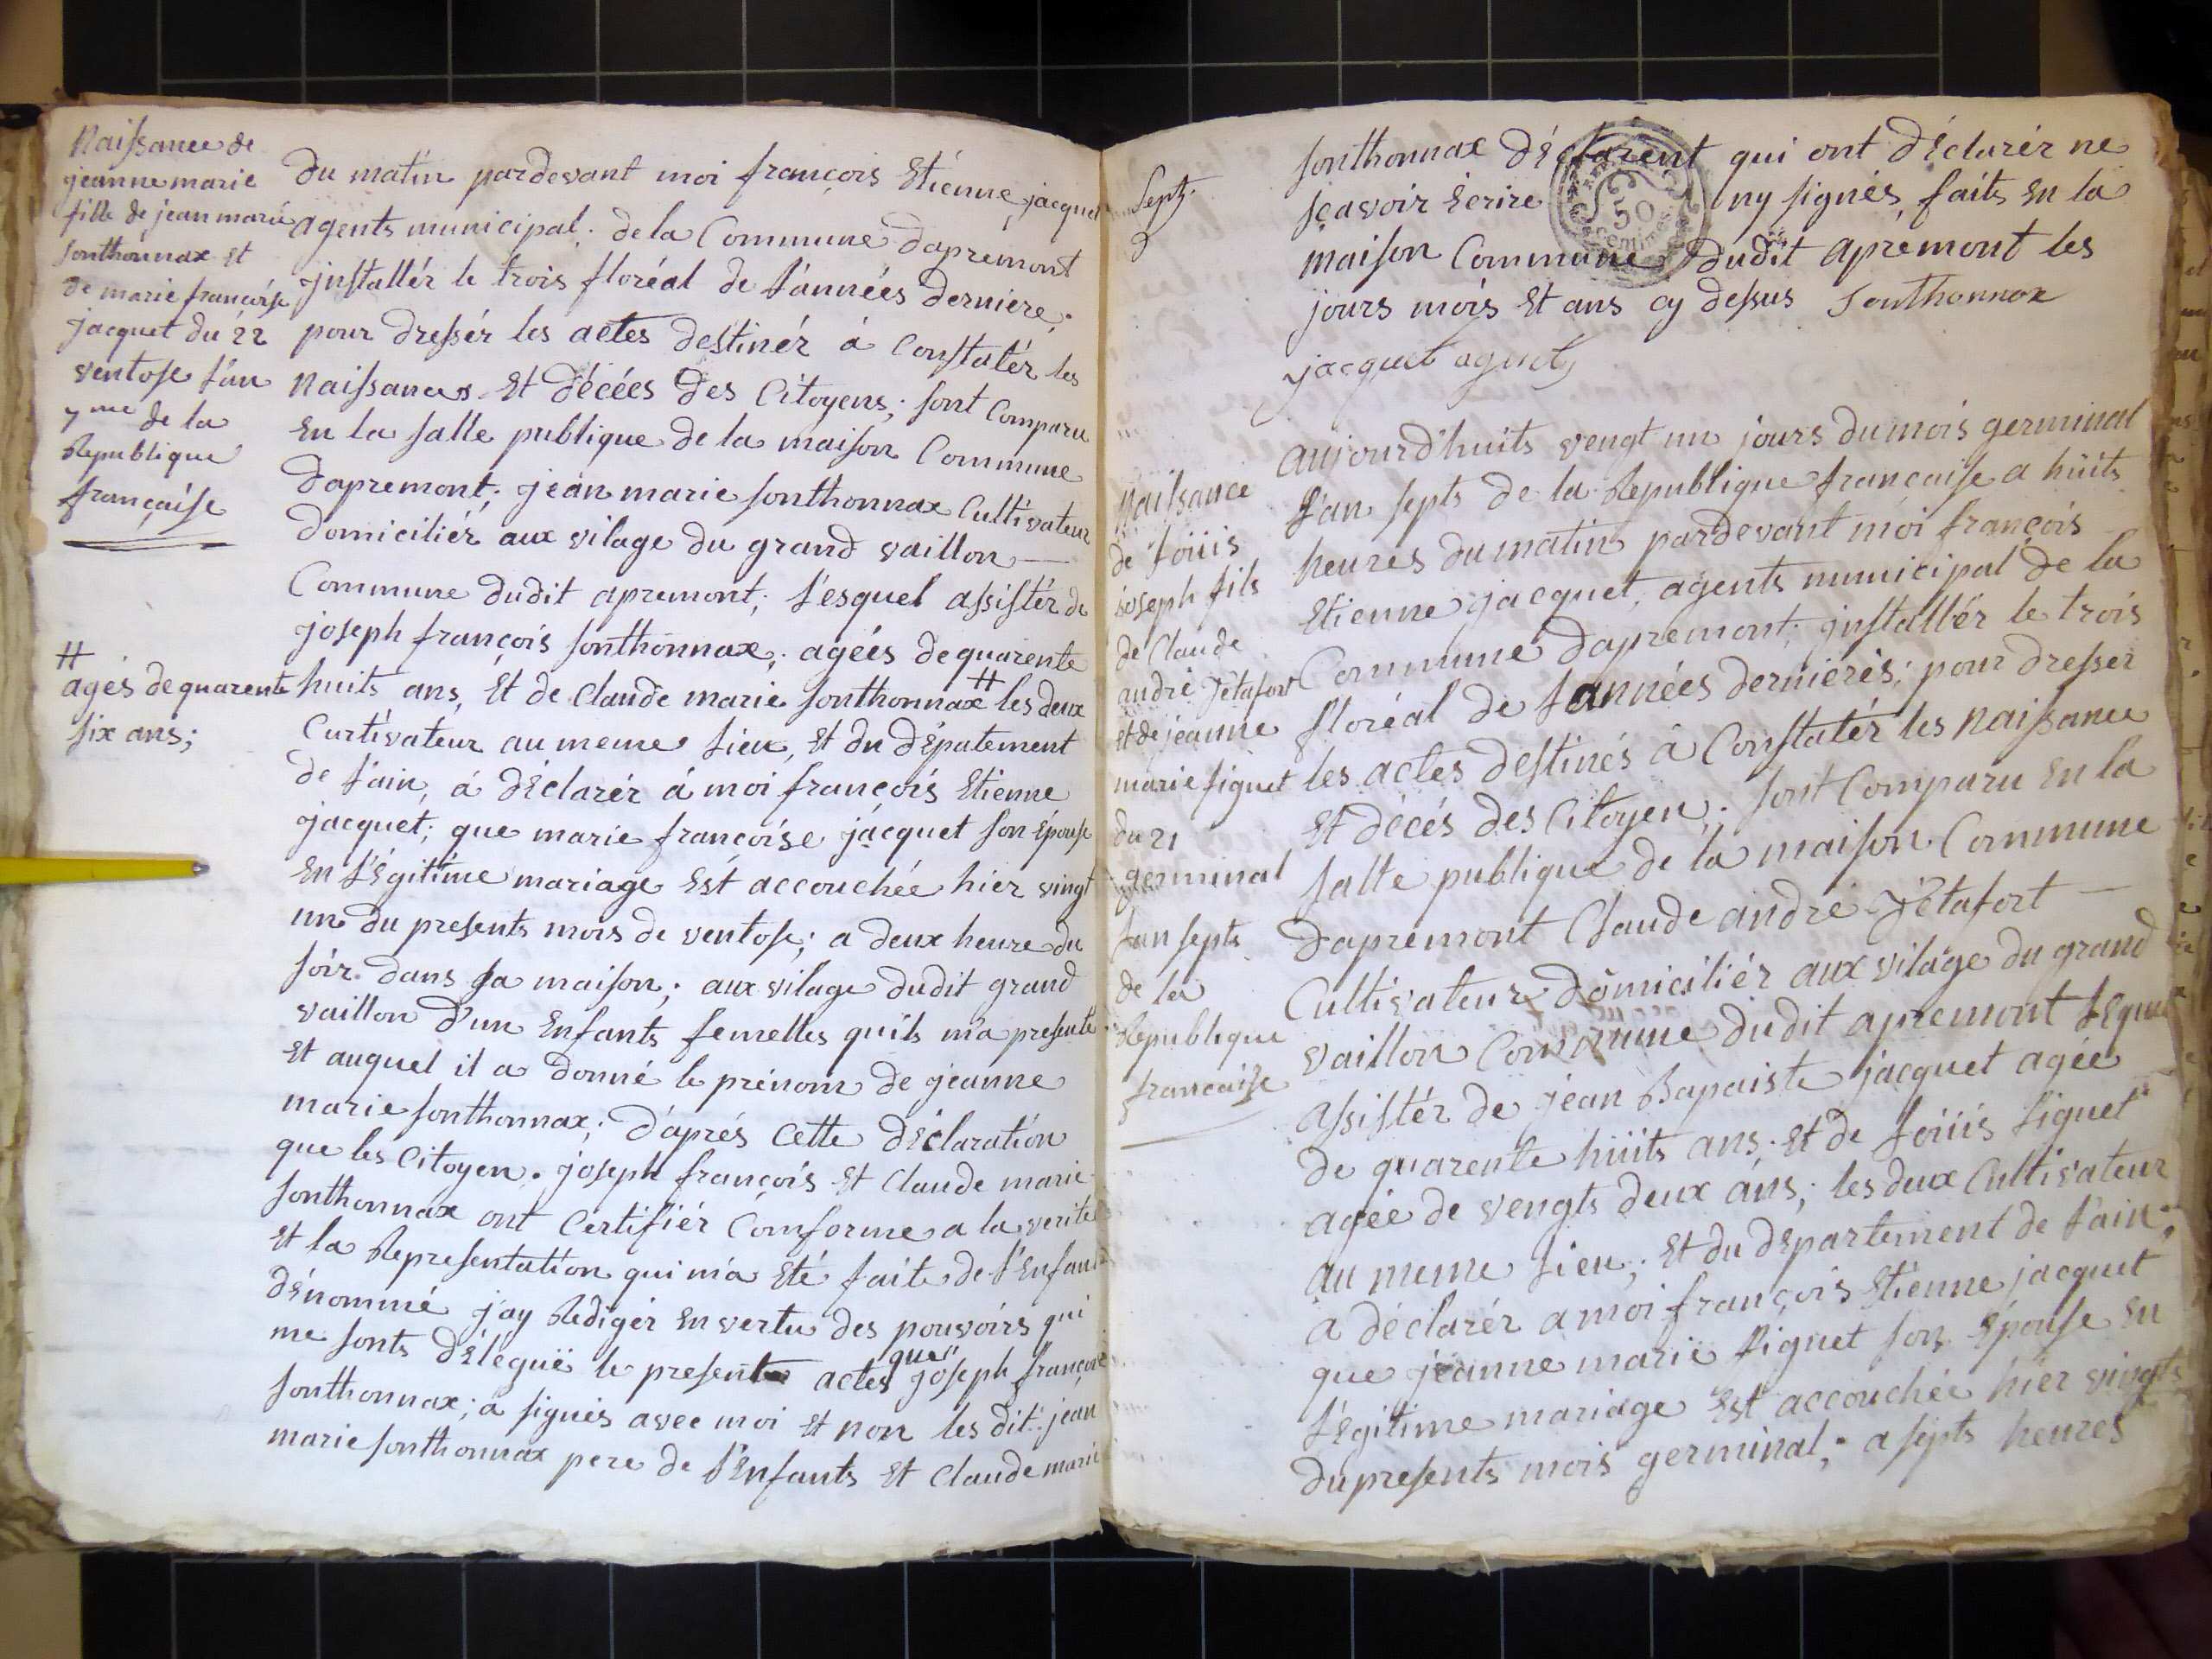 Naissance de
jeanne marie
fille de jean marie
sonthonnax Et
de marie françoise
jacquet du 22
ventose l'an
7me de la
Republique
française
#
agés de quarente
six ans;
du matin pardevant moi françois Etienne jacquet
agents municipal. de la Commune dapremont
jnstallér le trois floréal de l'années derniere;
pour dressér les actes destinér á Constatér les
Naissances Et décées des Citoyens; sont Comparu
En la salle publique de la maison Commune
dapremont; jean marie sonthonnax Cultivateur
domiciliér aux vilage du grand vaillon —
Commune dudit apremont; l'esquel assistér de
joseph françois sonthonnax; agées de quarente
huits ans, Et de Claude marie sonthonnax # les deux
Curtivateur au meme lieu, Et du dépatement
de l'ain, á déclarér á moi françois Etienne
jacquet; que marie françoise jacquet son Épouse
En l'égitime mariage Est accouchée hier vingt
un du presents mois de ventose; a deux heure du
soir dans sa maison; aux vilage dudit grand
vaillon d'un Enfants femelles quils m'a presenté
Et auquel il a donné le prénom de jeanne
marie sonthonnax; d'aprés Cette déclaration
que les Citoyen. joseph françois Et Claude marie
sonthonnax ont Certifiér Comforme a la verité
Et la Representation qui m'a Eté faite de l'Enfant
dénommé j'ay Redigér En vertu des pouvoirs qui
me sonts déleguë le presents actes que joseph françois
sonthonnax; a signés avec moi Et non les dit: jean
marie sonthonnax pere de l'Enfants Et Claude marie
Sept.
9
sonthonnax déclarent qui ont déclarér ne
sçavoir Ecrire ny signés, faits En la
50
centimes
maison Commune dudit apremont les
jours mois Et ans cy dessus Sonthonnax
jacquet agent
Naissance
de loüis
joseph fils
de Claude
andré jétafort
Et de jeanne
marie signet
du 21
germinal
l'an septs
de la
Republique
francaise
aujourd'huits vengt un jours du mois germinal
l'an septs de la Republique française a huits
heures du matin pardevant moi françois
Etienne jacquet, agents municipal de la
Commune dapremont; jnstallér le trois
floréal de l'années dernieres; pour dresser
les actes destinés á Constatér les Naissance
Et décés des Citoyen; sont Comparu En la
salle publique de la maison Commune
dapremont Claude andré jétafort —
Cultivateur domiciliér aux vilage du grand
vaillon Commune dudit apremont lequel
assistér de jean Bapaiste jacquet agée
de quarente huits ans; Et de loüis signet
agée de vengts deux ans; les deux Cultivateur
au meme lieu; Et du département de l'ain;
a déclarér a moi françois Etienne jacquet
que jeanne marie signet son Épouse En
l'égitime mariage Est accouchée hier vingts
du presents mois germinal; a septs heures